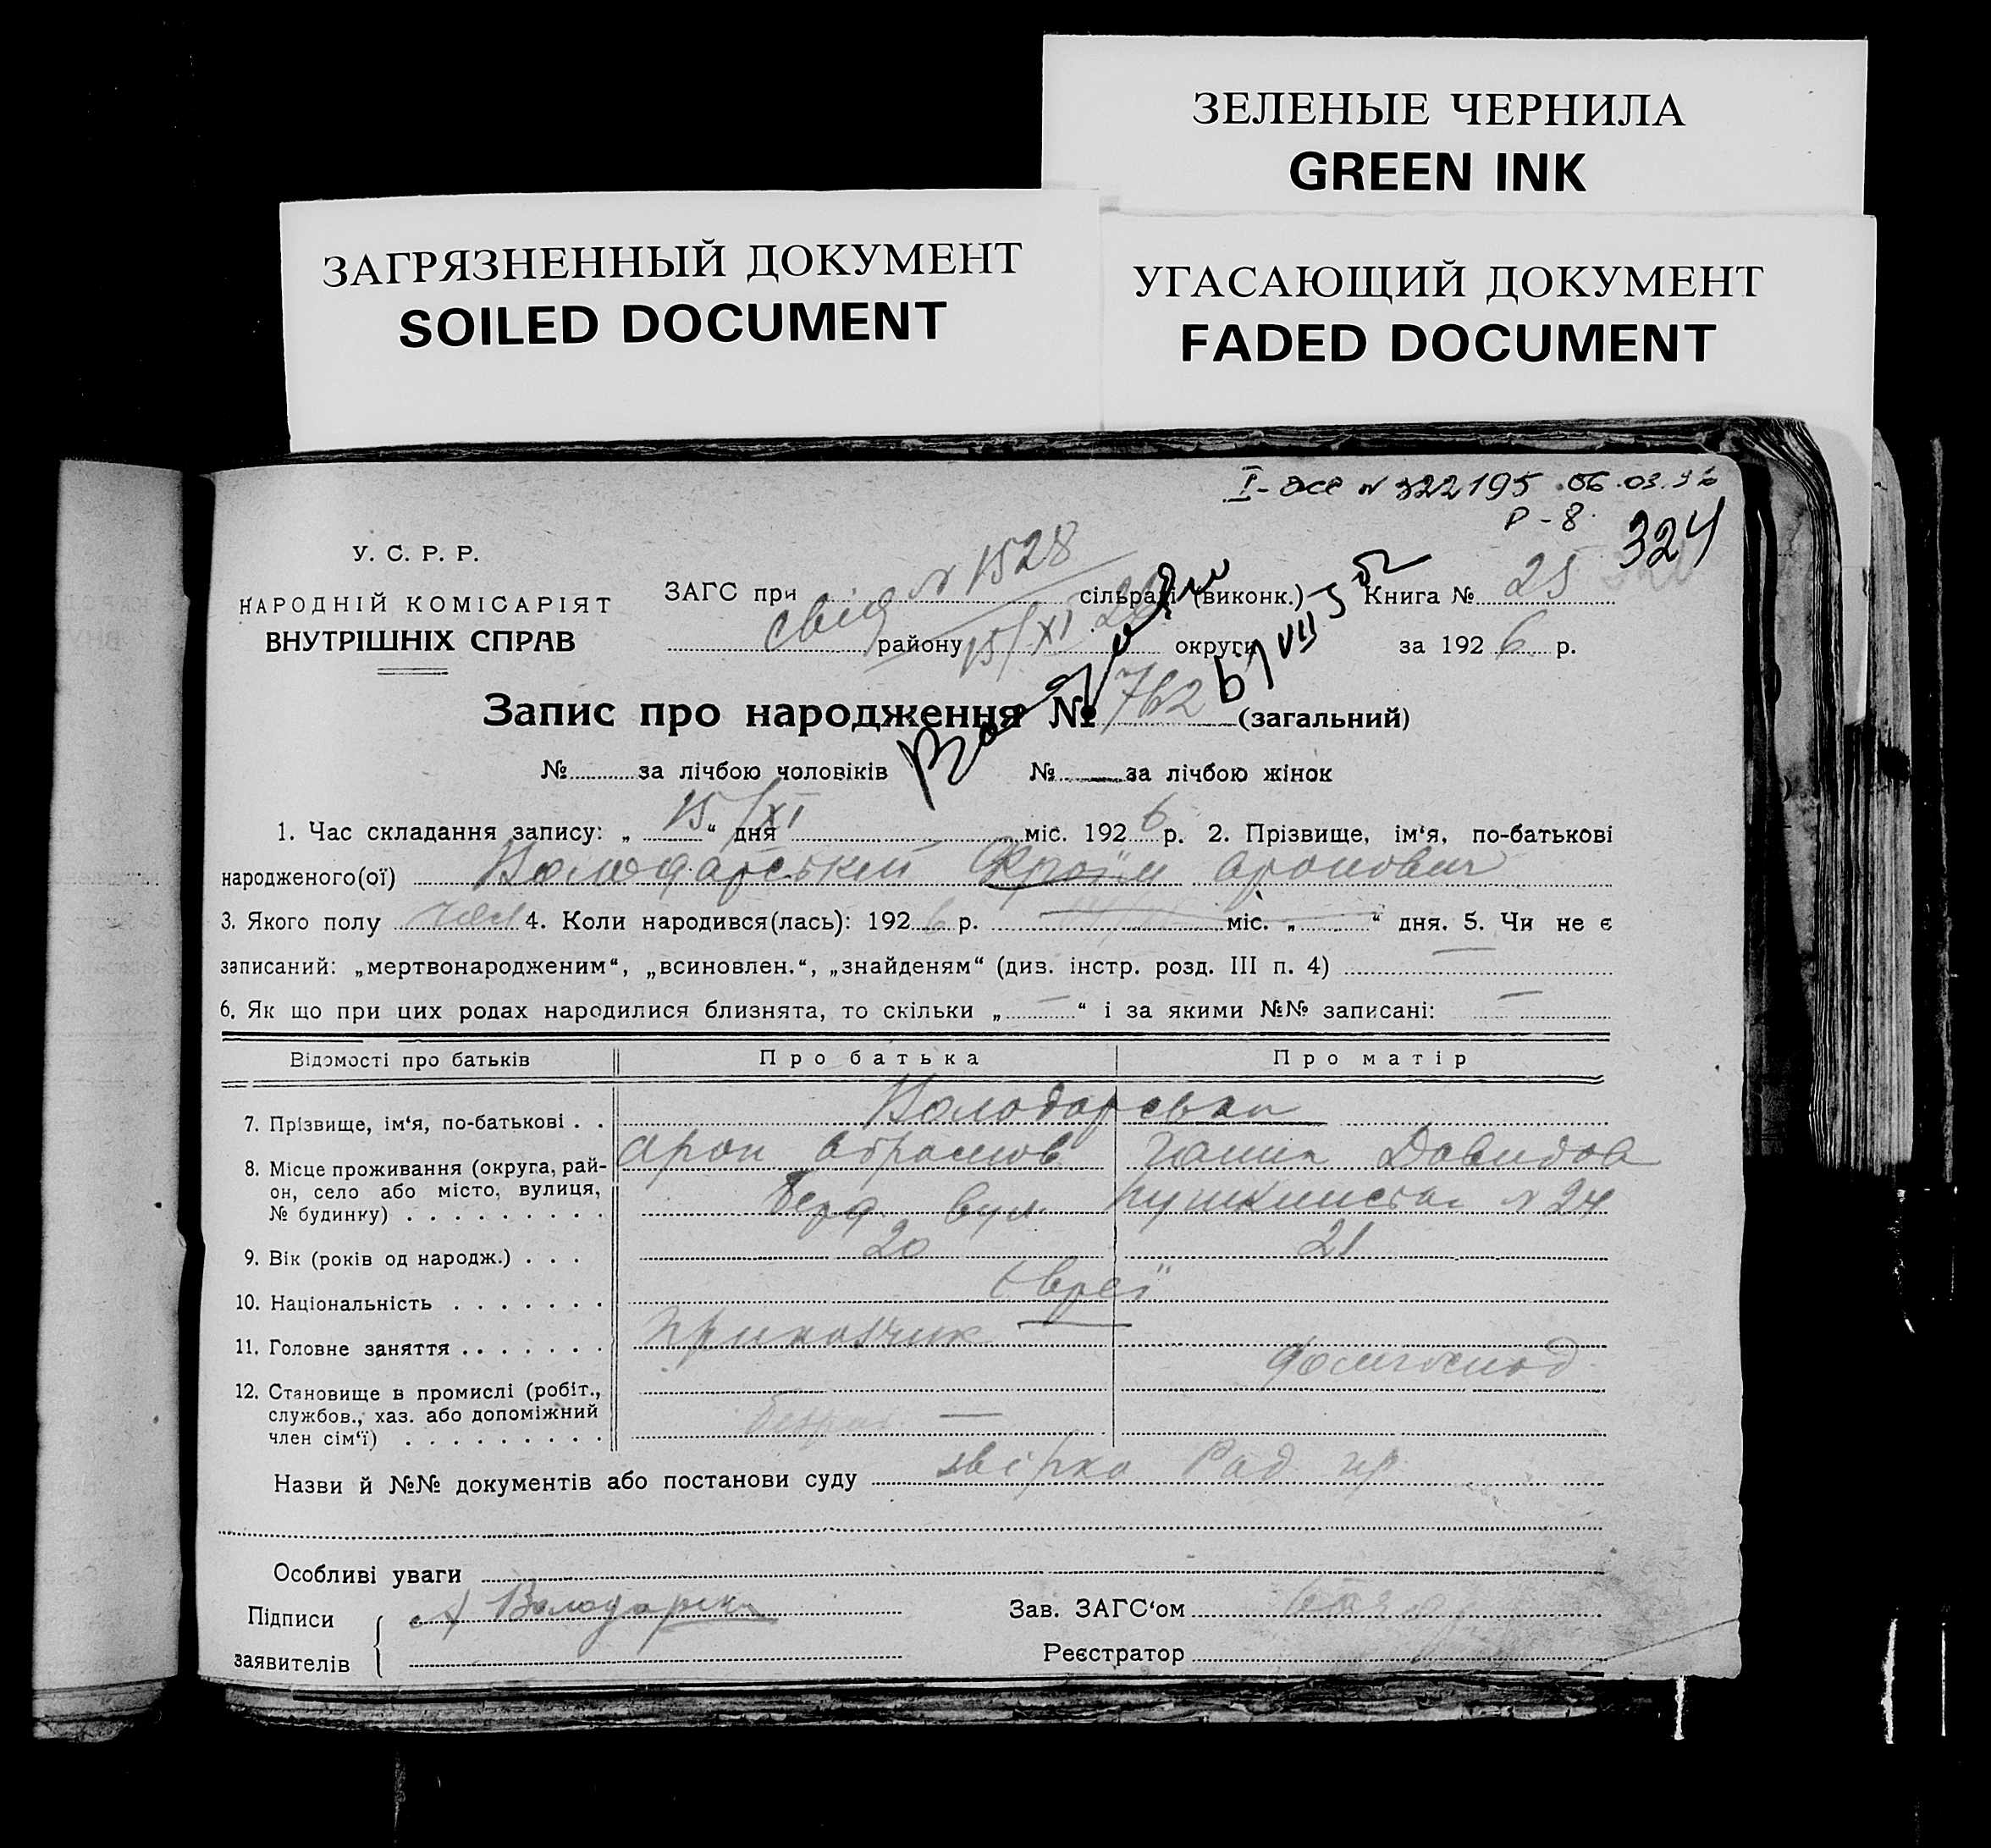 ЗЕЛЕНЫЕ ЧЕРНИЛА
GREEN INK
ЗАГРЯЗНЕННЫЙ ДОКУМЕНТ
SOILED DOCUMENT
УГАСАЮЩИЙ ДОКУМЕНТ
FADED DOCUMENT
N 322195 06.03.96
Р-8
324
У. С. Р. Р.
НАРОДНІЙ КОМІСАРІЯТ
ВНУТРІШНІХ СПРАВ
ЗАГС при сільраді (виконк.) Книга № 25
свід N 1528
району 15/XI 26 округи за 1926 р.
Запис про народження № 762 (загальний)
№ за лічбою чоловіків № за лічбою жінок
1. Час складання запису: „15/XI“ дня міс. 1926 р. 2. Прізвище, ім‘я, по-батькові
народженого(ої) Володарський Фроїм Аронович
3. Якого полу чол 4. Коли народився(лась): 1926 р. міс. „ “ дня. 5. Чи не є
записаний: „мертвонародженим“, „всиновлен.“, „знайденям“ (див. інстр. розд. III п. 4) —
6. Як що при цих родах народилися близнята, то скільки „—“ і за якими №№ записані: —
Відомості про батьків Про батька Про матір
7. Прізвище, ім‘я, по-батькові . . Володарськи
Арон Абрамов Давидов
8. Місце проживання (округа, рай-
он, село або місто, вулиця,
№ будинку) . . . . . . . . . Берд. вул. Пушкинська N 24
9. Вік (років од народж.) . . . 20 21
10. Національність . . . . . . . Євреї
11. Головне заняття . . . . . . . Приказчик домгоспод
12. Становище в промислі (робіт.,
службов., хаз. або допоміжний
член сім‘ї) . . . . . . . . . —
Назви й №№ документів або постанови суду
Особливі уваги
Підписи А Володарски Зав. ЗАГС‘ом
заявителів Реєстратор